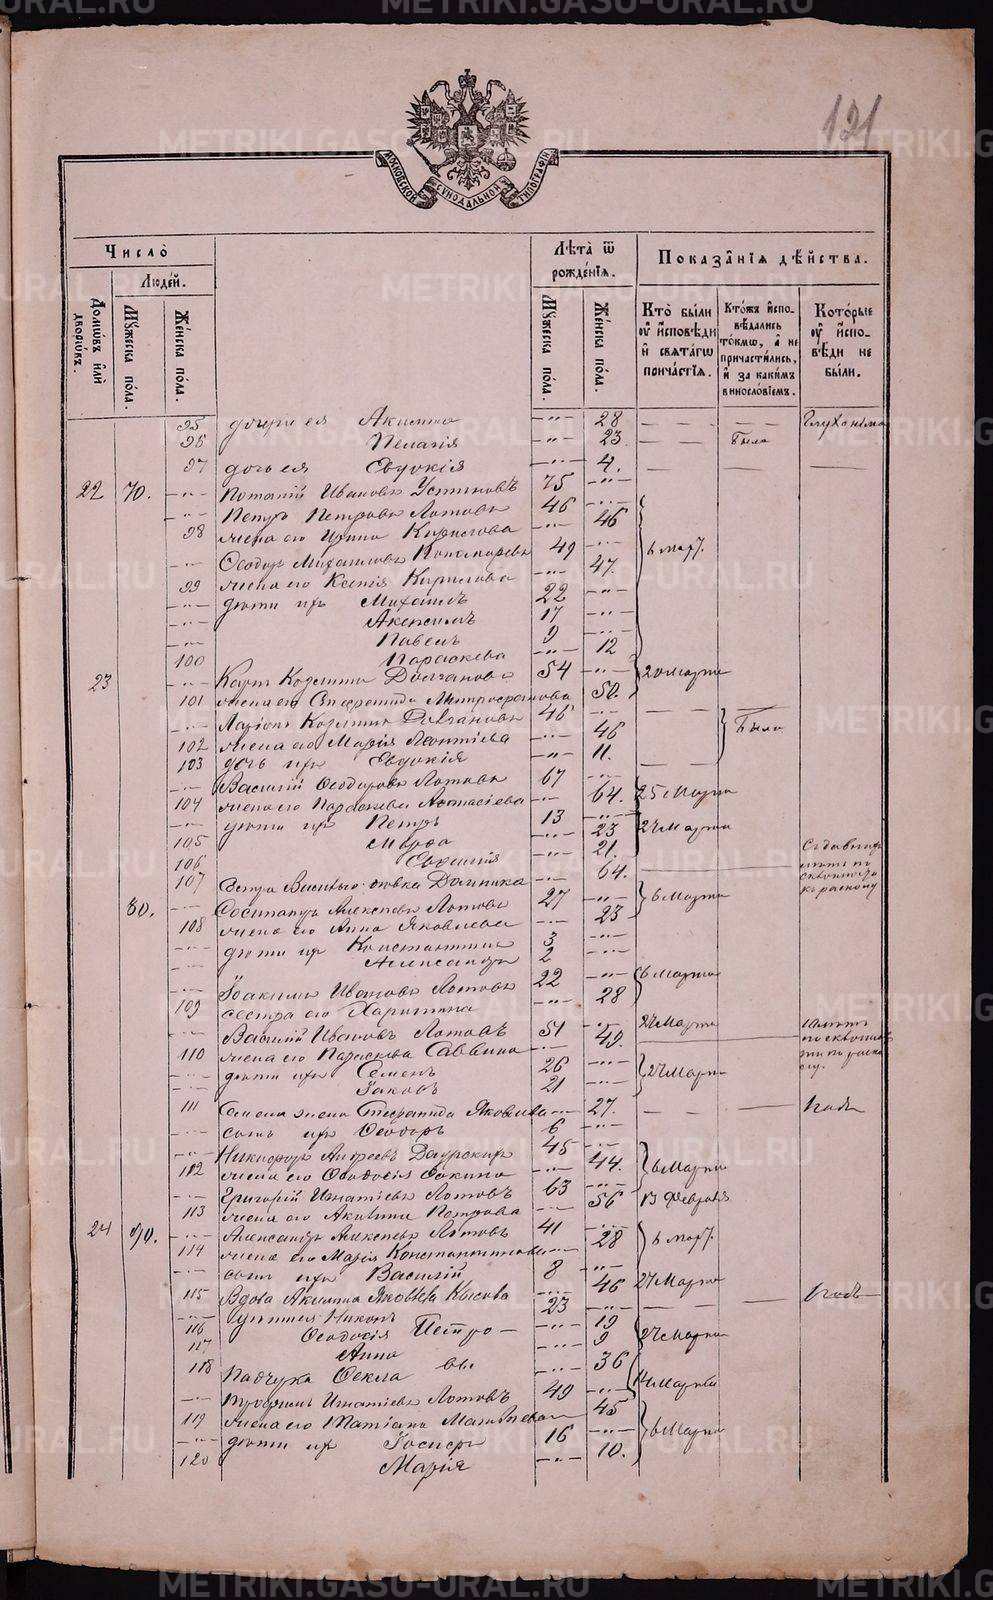 131
МОСКОВСКОЙ СѴНОДАЛЬНОЙ ТИПОГРАФІИ
Число̀
Людей.
Домѡвъ илѝ дворѡвъ.
Мꙋжеска пола.
Женска пола.
Лѣта ѿ рожденїѧ.
Мꙋжеска пола.
Женска пола.
Показанїѧ дѣйства.
Кто̀ были ᲂу҆ исповѣди и свѧтагѡ причастїѧ.
Ктожъ исповѣдались токмѡ, а не причастились, и за какимъ винословіемъ.
Которые ᲂу҆ исповѣди не были.
95 дочери ея Акилина -"- 28 — — Глухонѣма
96 Пелагія -"- 23 — Была
97 дочь ея Евдокія -"- 4. — — —
22 70. -"- Потапій Ивановъ Устиновъ 75 -"-
-"- Петръ Петровъ Лотовъ 46 -"-
98 жена его Ирина Кирилова -"- 46
-"- Ѳеодоръ Михаиловъ Пономаревъ 49 -"- 6 март.
99 жена его Ксенія Кирилова -"- 47.
-"- дѣти ихъ Михаилъ 22 -"-
-"- Аксимъ 17 -"-
-"- Павелъ 9 -"-
100 Параскева -"- 12
23 -"- Карпъ Козминъ Долгановъ 54 -"- 20 марта
101 жена его Епистимія Митрофанова -"- 50.
-"- Ларіонъ Козминъ Долгановъ 46 -"- — Были
102 жена его Марія Леонтіева -"- 46
103 дочь ихъ Евдокія -"- 11. —
-"- Василій Ѳеодоровъ Лотовъ 67 -"- 25 марта
104 жена его Параскева Аѳанасіева -"- 64.
-"- дѣти ихъ Петръ 13 -"- 24 марта
105 Марѳа 23
106 Евдокія -"- 21.
107 Сестра Василья вдова Домника -"- 64. — —
80. -"- Сосипатръ Алексѣевъ Лотовъ 27 -"- 6 марта
108 жена его Анна Яковлева -"- 23
-"- дѣти ихъ Константинъ 3 -"-
-"- Александръ 2 -"-
-"- Іоакимъ Ивановъ Лотовъ 22 -"- 6 марта
109 сестра его Харитина -"- 28
-"- Василій Ивановъ Лотовъ 51 -"- 24 марта
110 жена его Параскева Саввина -"- 49. — —
-"- дѣти ихъ Семенъ 26 -"- 24 марта
-"- Іаковъ 21 -"-
111 Семена жена Епистимія Яковлева -"- 27. — —
-"- сынъ ихъ Ѳеодоръ 6 -"-
-"- Никифоръ Андреевъ Даурскихъ 45 -"- 6 марта
112 жена его Ѳеодосія Фокина -"- 44.
-"- Григорій Игнатіевъ Лотовъ 63 -"- 13 февраля
113 жена его Акилина Петрова -"- 56
24 90. -"- Александръ Алексѣевъ Лотовъ 41 -"- 6 март.
114 жена его Марія Константинова -"- 28
-"- сынъ ихъ Василій 8 -"-
115 Вдова Акилина Яковлева -"- 46 24 марта
-"- Никонъ 23 -"- — —
116 Ѳеодосія Петро- -"- 19 24 марта
117 Анна вы -"- 9
118 Падчерка Ѳекла -"- 36 14 марта
-"- Трофимъ Игнатіевъ Лотовъ 49 -"-
119 жена его Татіана Матвѣева -"- 45 6 марта
-"- дѣти ихъ Іосифъ 16 -"-
120 Марія -"- 10.
METRIKI.GASO-URAL.RU